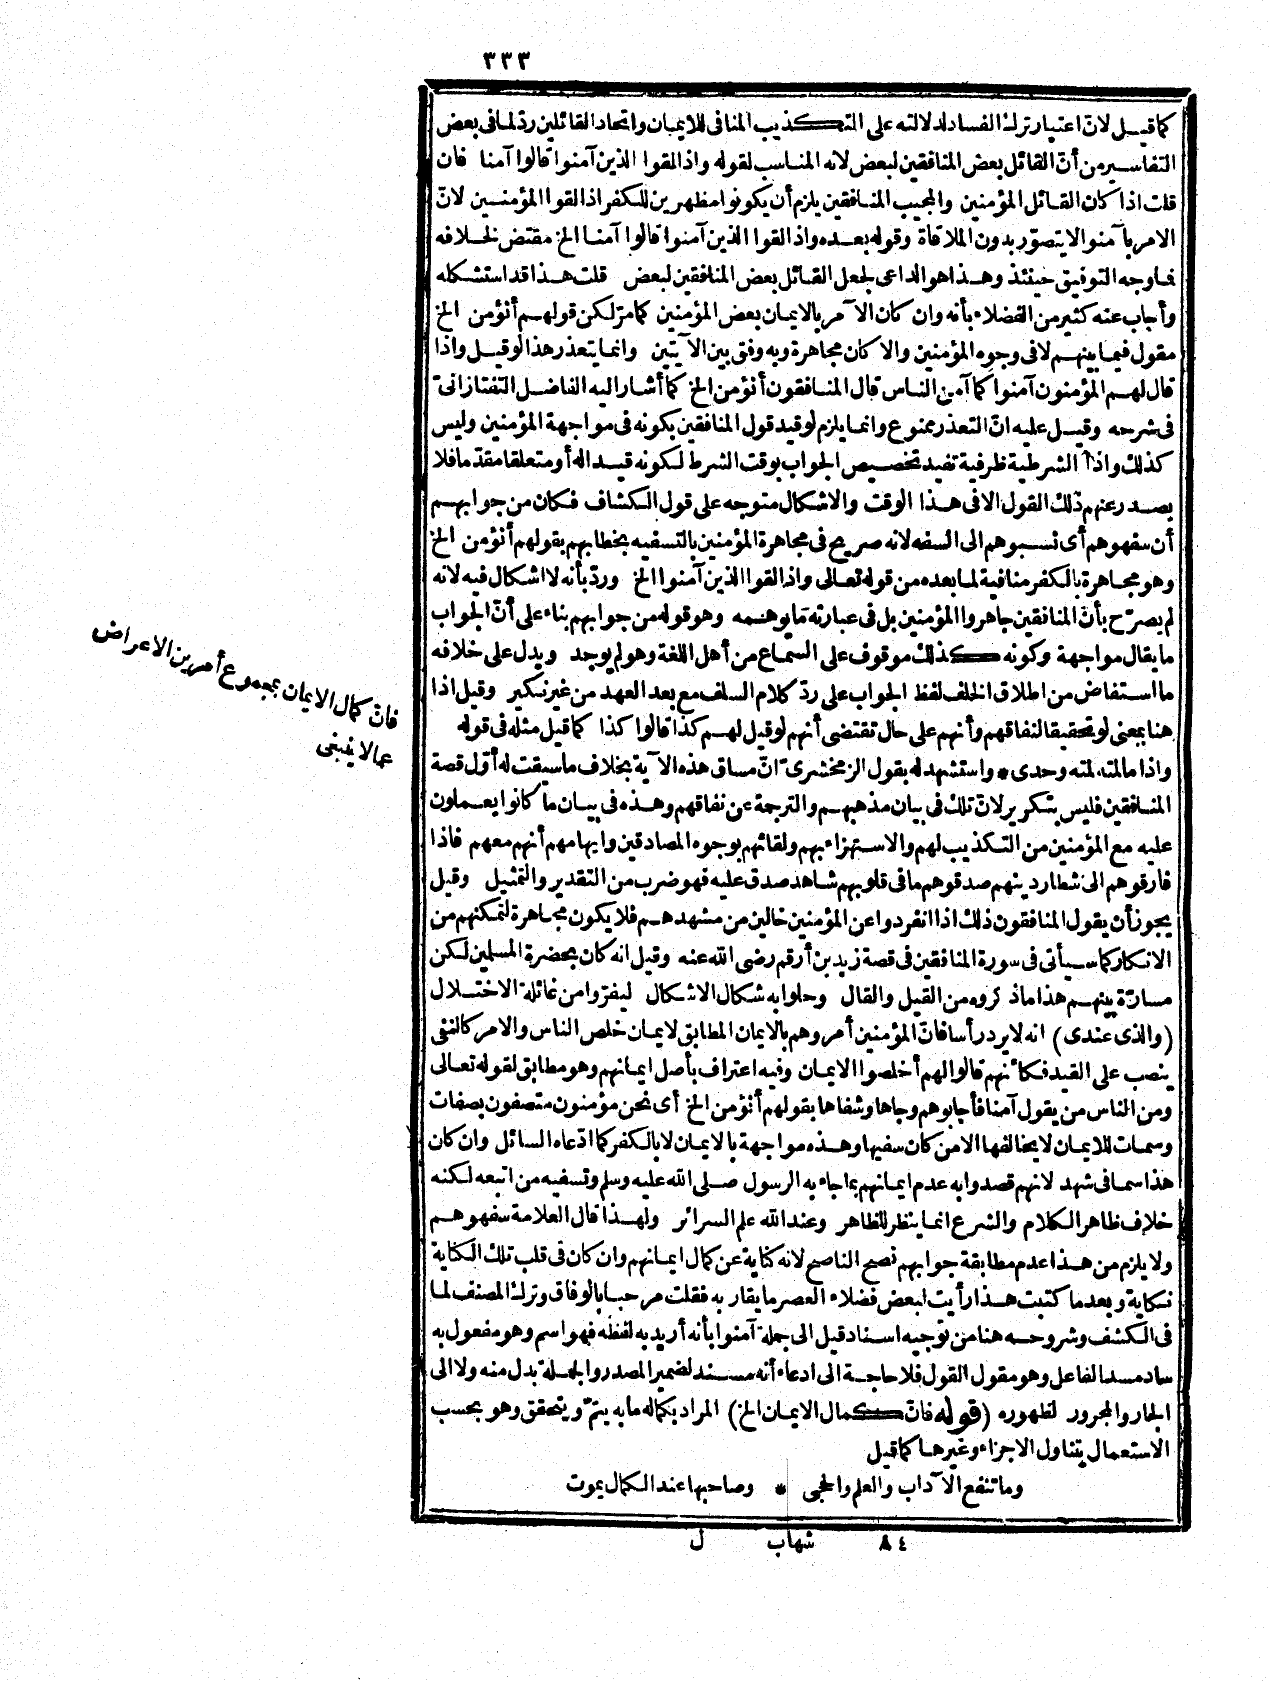 ٣٣٣
كما قيل لانّ اعتبار ترك الفساد لدلالته على التكذيب المنافى للايمان واتحاد القائلين ردّ لما فى بعض
التفاسير من أنّ القائل بعض المنافقين لبعض لانه المناسب لقوله واذا لقوا الذين آمنوا قالوا آمنا فان
قلت اذا كان القائل المؤمنين والمجيب المنافقين يلزم أن يكونوا مظهرين للكفر اذا لقوا المؤمنين لانّ
الامر بآمنوا لا يتصوّر بدون الملاقاة وقوله بعده واذا لقوا الذين آمنوا قالوا آمنا الخ مقتض لخلافه
فما وجه التوفيق حينئذ وهذا هو الداعى لجعل القائل بعض المنافقين لبعض قلت هذا قد استشكله
وأجاب عنه كثير من الفضلاء بأنه وان كان الآمر بالايمان بعض المؤمنين كما مرّ لكن قولهم أنؤمن الخ
مقول فيما بينهم لا فى وجوه المؤمنين والا كان مجاهرة وبه وفق بين الآيتين وانما يتعذر هذا لو قيل واذا
قال لهم المؤمنون آمنوا كما آمن الناس قال المنافقون أنؤمن الخ كما أشار اليه الفاضل التفتازانىّ
فى شرحه وقيل عليه انّ التعذر ممنوع وانما يلزم لو قيد قول المنافقين بكونه فى مواجهة المؤمنين وليس
كذلك واذا الشرطية ظرفية تفيد تخصيص الجواب بوقت الشرط لكونه قيدا له أو متعلقا مقدّما فلا
يصدر عنهم ذلك القول الا فى هذا الوقت والاشكال متوجه على قول الكشاف فكان من جوابهم
أن سفهوهم أى نسبوهم الى السفه لانه صريح فى مجاهرة المؤمنين بالتسفيه بخطابهم بقولهم أنؤمن الخ
وهو مجاهرة بالكفر منافية لما بعده من قوله تعالى واذا لقوا الذين آمنوا الخ وردّ بأنه لا اشكال فيه لانه
لم يصرّح بأنّ المنافقين جاهروا المؤمنين بل فى عبارته ما يوهمه وهو قوله من جوابهم بناء على أنّ الجواب
ما يقال مواجهة وكونه كذلك موقوف على السماع من أهل اللغة وهو لم يوجد ويدل على خلافه
ما استفاض من اطلاق الخلف لفظ الجواب على ردّ كلام السلف مع بعد العهد من غير نكير وقيل اذا
هنا بمعنى لو تحقيقا لنفاقهم وأنهم على حال تقتضى أنهم لو قيل لهم كذا قالوا كذا كما قيل مثله فى قوله
واذا ما لمته لمته وحدى * واستشهد له بقول الزمخشرىّ انّ مساق هذه الآية بخلاف ما سيقت له أوّل قصة
المنافقين فليس بتكرير لانّ تلك فى بيان مذهبهم والترجمة عن نفاقهم وهذه فى بيان ما كانوا يعملون
عليه مع المؤمنين من التكذيب لهم والاستهزاء بهم ولقائهم بوجوه المصادقين وايهامهم أنهم معهم فاذا
فارقوهم الى شطار دينهم صدقوهم ما فى قلوبهم شاهد صدق عليه فهو ضرب من التقدير والتمثيل وقيل
يجوز أن يقول المنافقون ذلك اذا انفردوا عن المؤمنين خالين من مشهدهم فلا يكون مجاهرة لتمكنهم من
الانكار كما سيأتى فى سورة المنافقين فى قصة زيد بن أرقم رضى الله عنه وقيل انه كان بحضرة المسلمين لكن
مسارّة بينهم هذا ما ذكروه من القيل والقال وحلوا به شكال الاشكال ليفرّوا من غائلة الاختلال
(والذى عندى) انه لا يرد رأسا فانّ المؤمنين أمروهم بالايمان المطابق لايمان خلص الناس والامر كالنفى
ينصب على القيد فكأنهم قالوا لهم أخلصوا الايمان وفيه اعتراف بأصل ايمانهم وهو مطابق لقوله تعالى
ومن الناس من يقول آمنا فأجابوهم وجاها وشفاها بقولهم أنؤمن الخ أى نحن مؤمنون متصفون بصفات
وسمات للايمان لا يخالفها الا من كان سفيها وهذه مواجهة بالايمان لا بالكفر كما ادّعاه السائل وان كان
هذا سما فى شهد لانهم قصدوا به عدم ايمانهم بما جاء به الرسول صلى الله عليه وسلم وتسفيه من اتبعه لكنه
خلاف ظاهر الكلام والشرع انما ينظر للظاهر وعند الله علم السرائر ولهذا قال العلامة سفهوهم
ولا يلزم من هذا عدم مطابقة جوابهم نصح الناصح لانه كناية عن كمال ايمانهم وان كان فى قلب تلك الكناية
نكاية وبعد ما كتبت هذا رأيت لبعض فضلاء العصر ما يقاربه فقلت مرحبا بالوفاق وترك المصنف لما
فى الكشف وشروحه هنا من توجيه اسناد قيل الى جملة آمنوا بأنه أريد به لفظه فهو اسم وهو مفعول به
ساد مسد الفاعل وهو مقول القول فلا حاجة الى ادعاء أنه مسند لضمير المصدر والجملة بدل منه ولا الى
الجار والمجرور لظهوره (قوله فانّ كمال الايمان الخ) المراد بكماله ما به يتمّ ويتحقق وهو بحسب
الاستعمال يتناول الاجزاء وغيرها كما قيل
وما تنفع الآداب والعلم والحجى * وصاحبها عند الكمال يموت
٨٤ شهاب ل
فانّ كمال الايمان بمجموع أمرين الاعراض
عما لا ينبغى